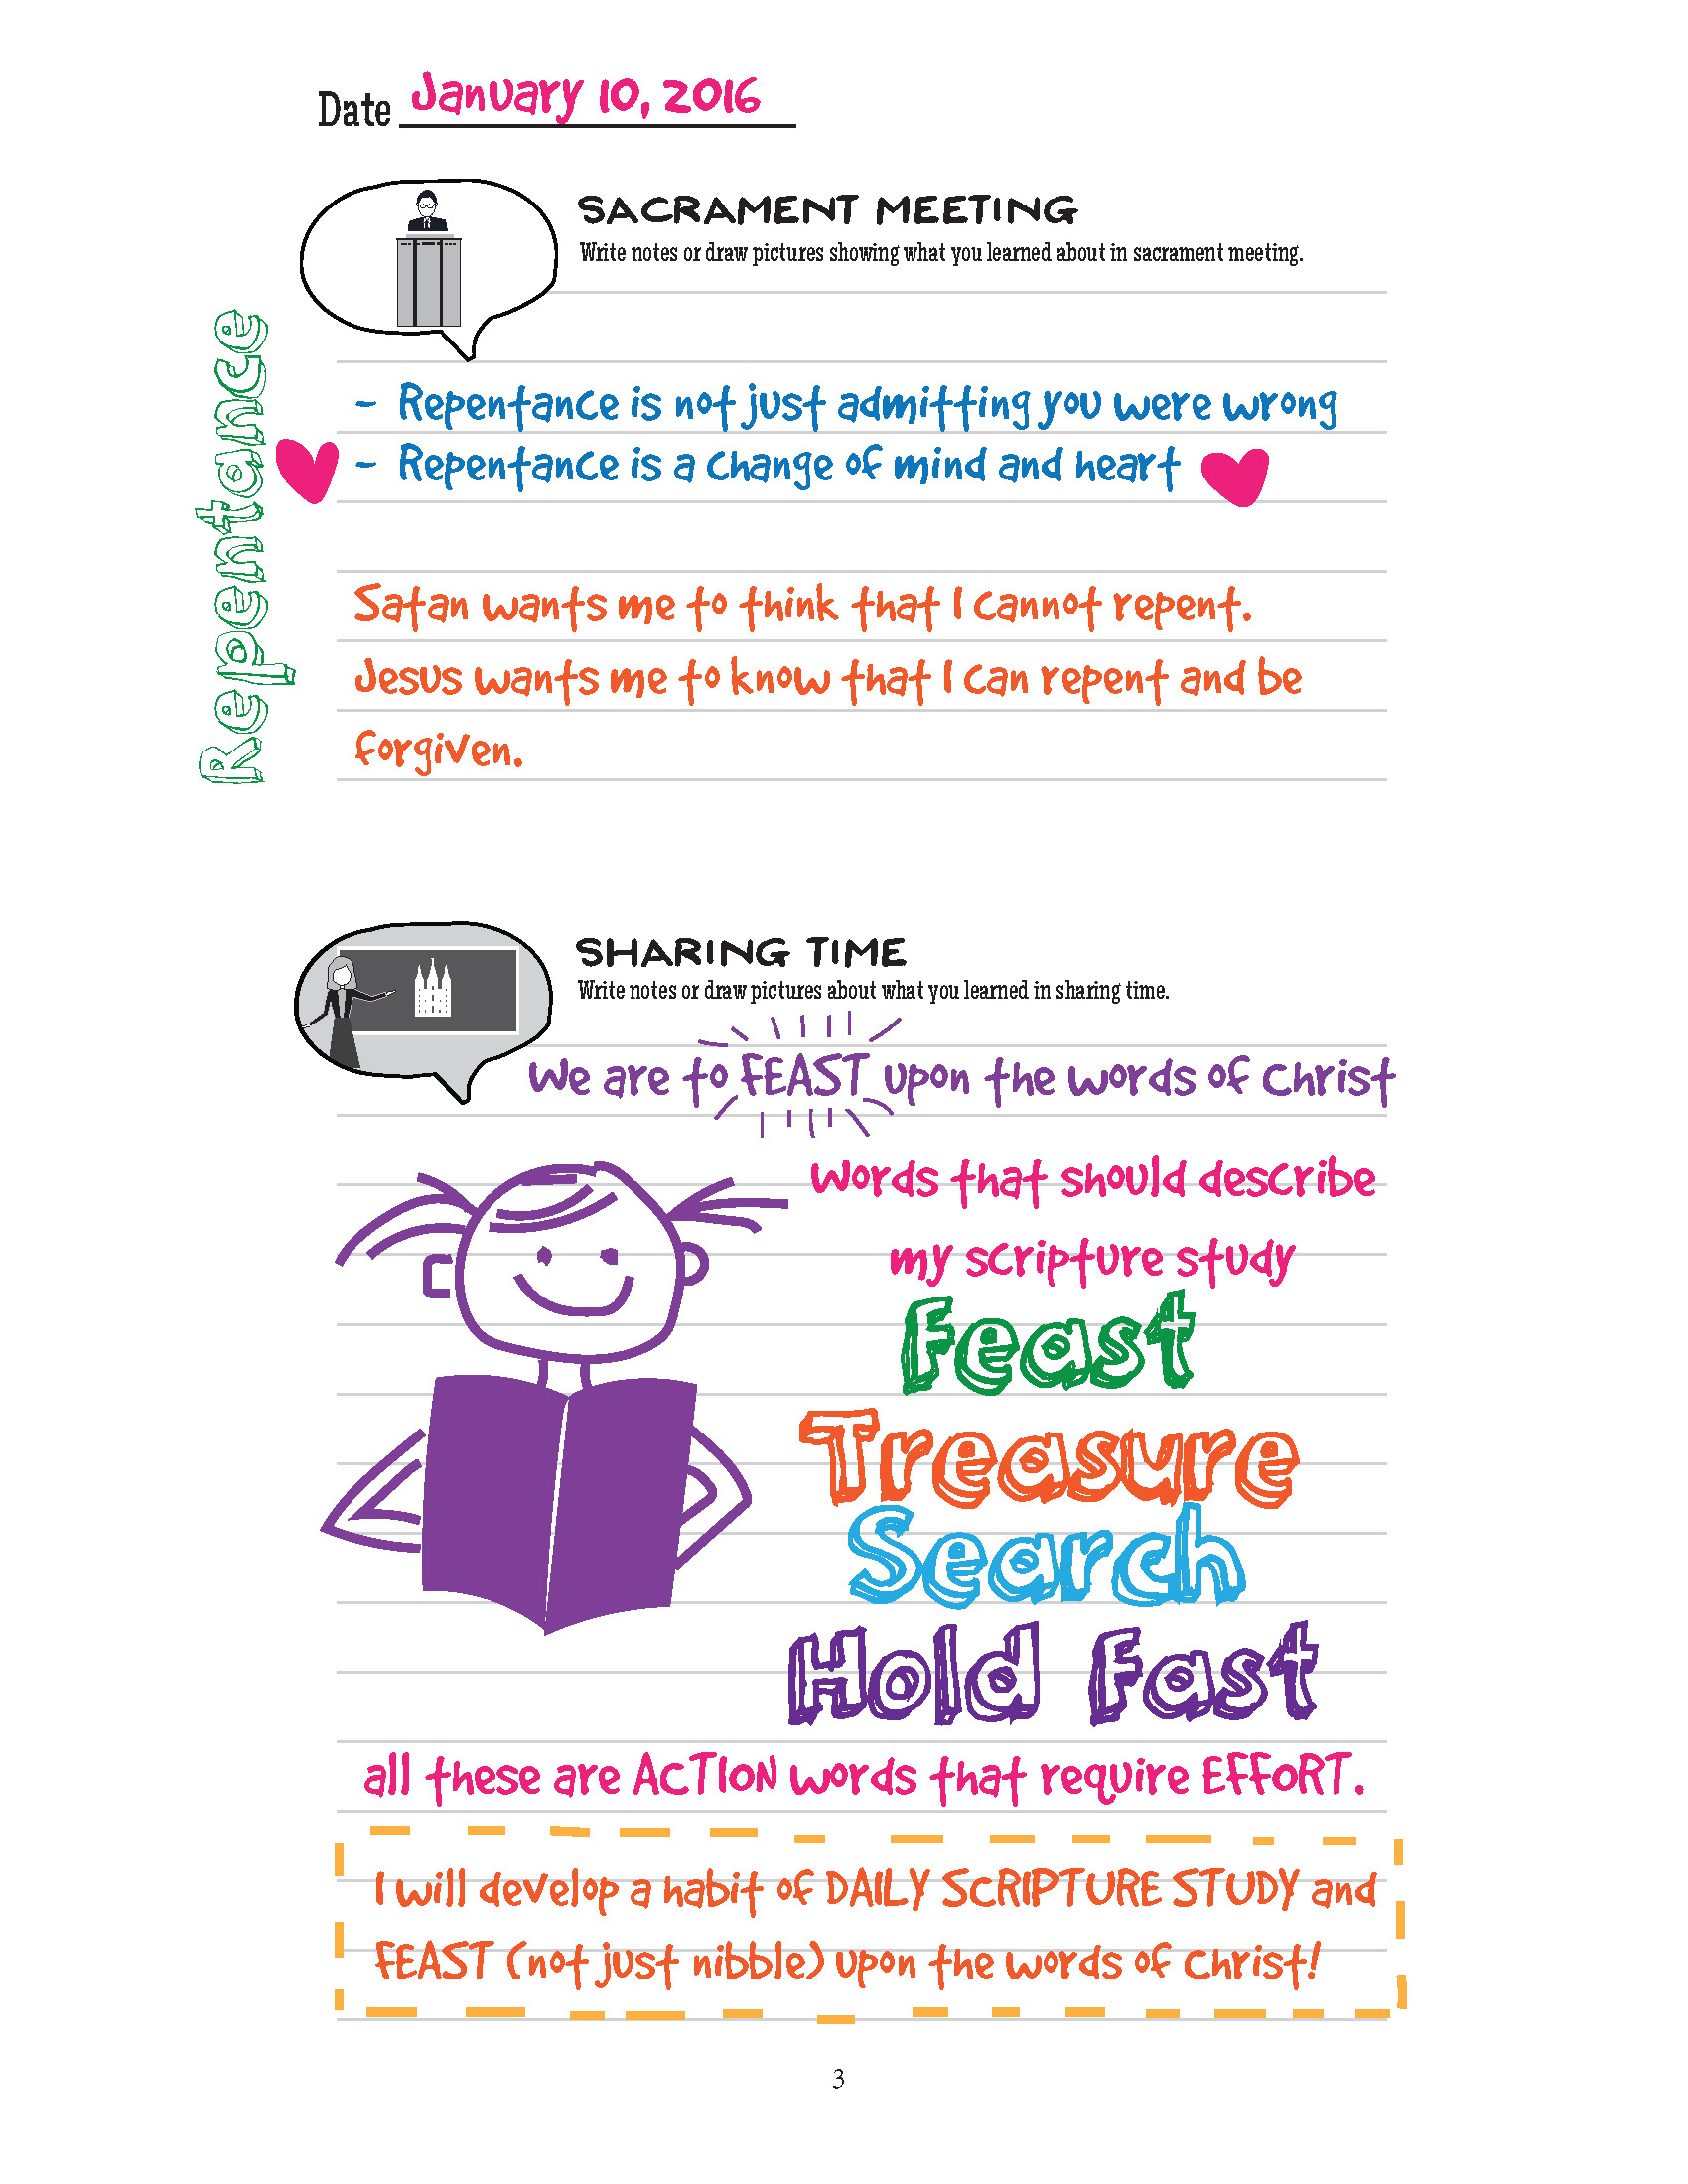 Date January 10, 2016
SACRAMENT MEETING
Write notes or draw pictures showing what you learned about in sacrament meeting.
Repentance
- Repentance is not just admitting you were wrong
- Repentance is a change of mind and heart
Satan wants me to think that I cannot repent.
Jesus wants me to know that I can repent and be
forgiven.
SHARING TIME
Write notes or draw pictures about what you learned in sharing time.
We are to FEAST upon the words of Christ
Words that should describe
my scripture study
Feast
Treasure
Search
Hold Fast
all these are ACTION words that require EFFORT.
I will develop a habit of DAILY SCRIPTURE STUDY and
FEAST (not just nibble) upon the words of Christ!
3